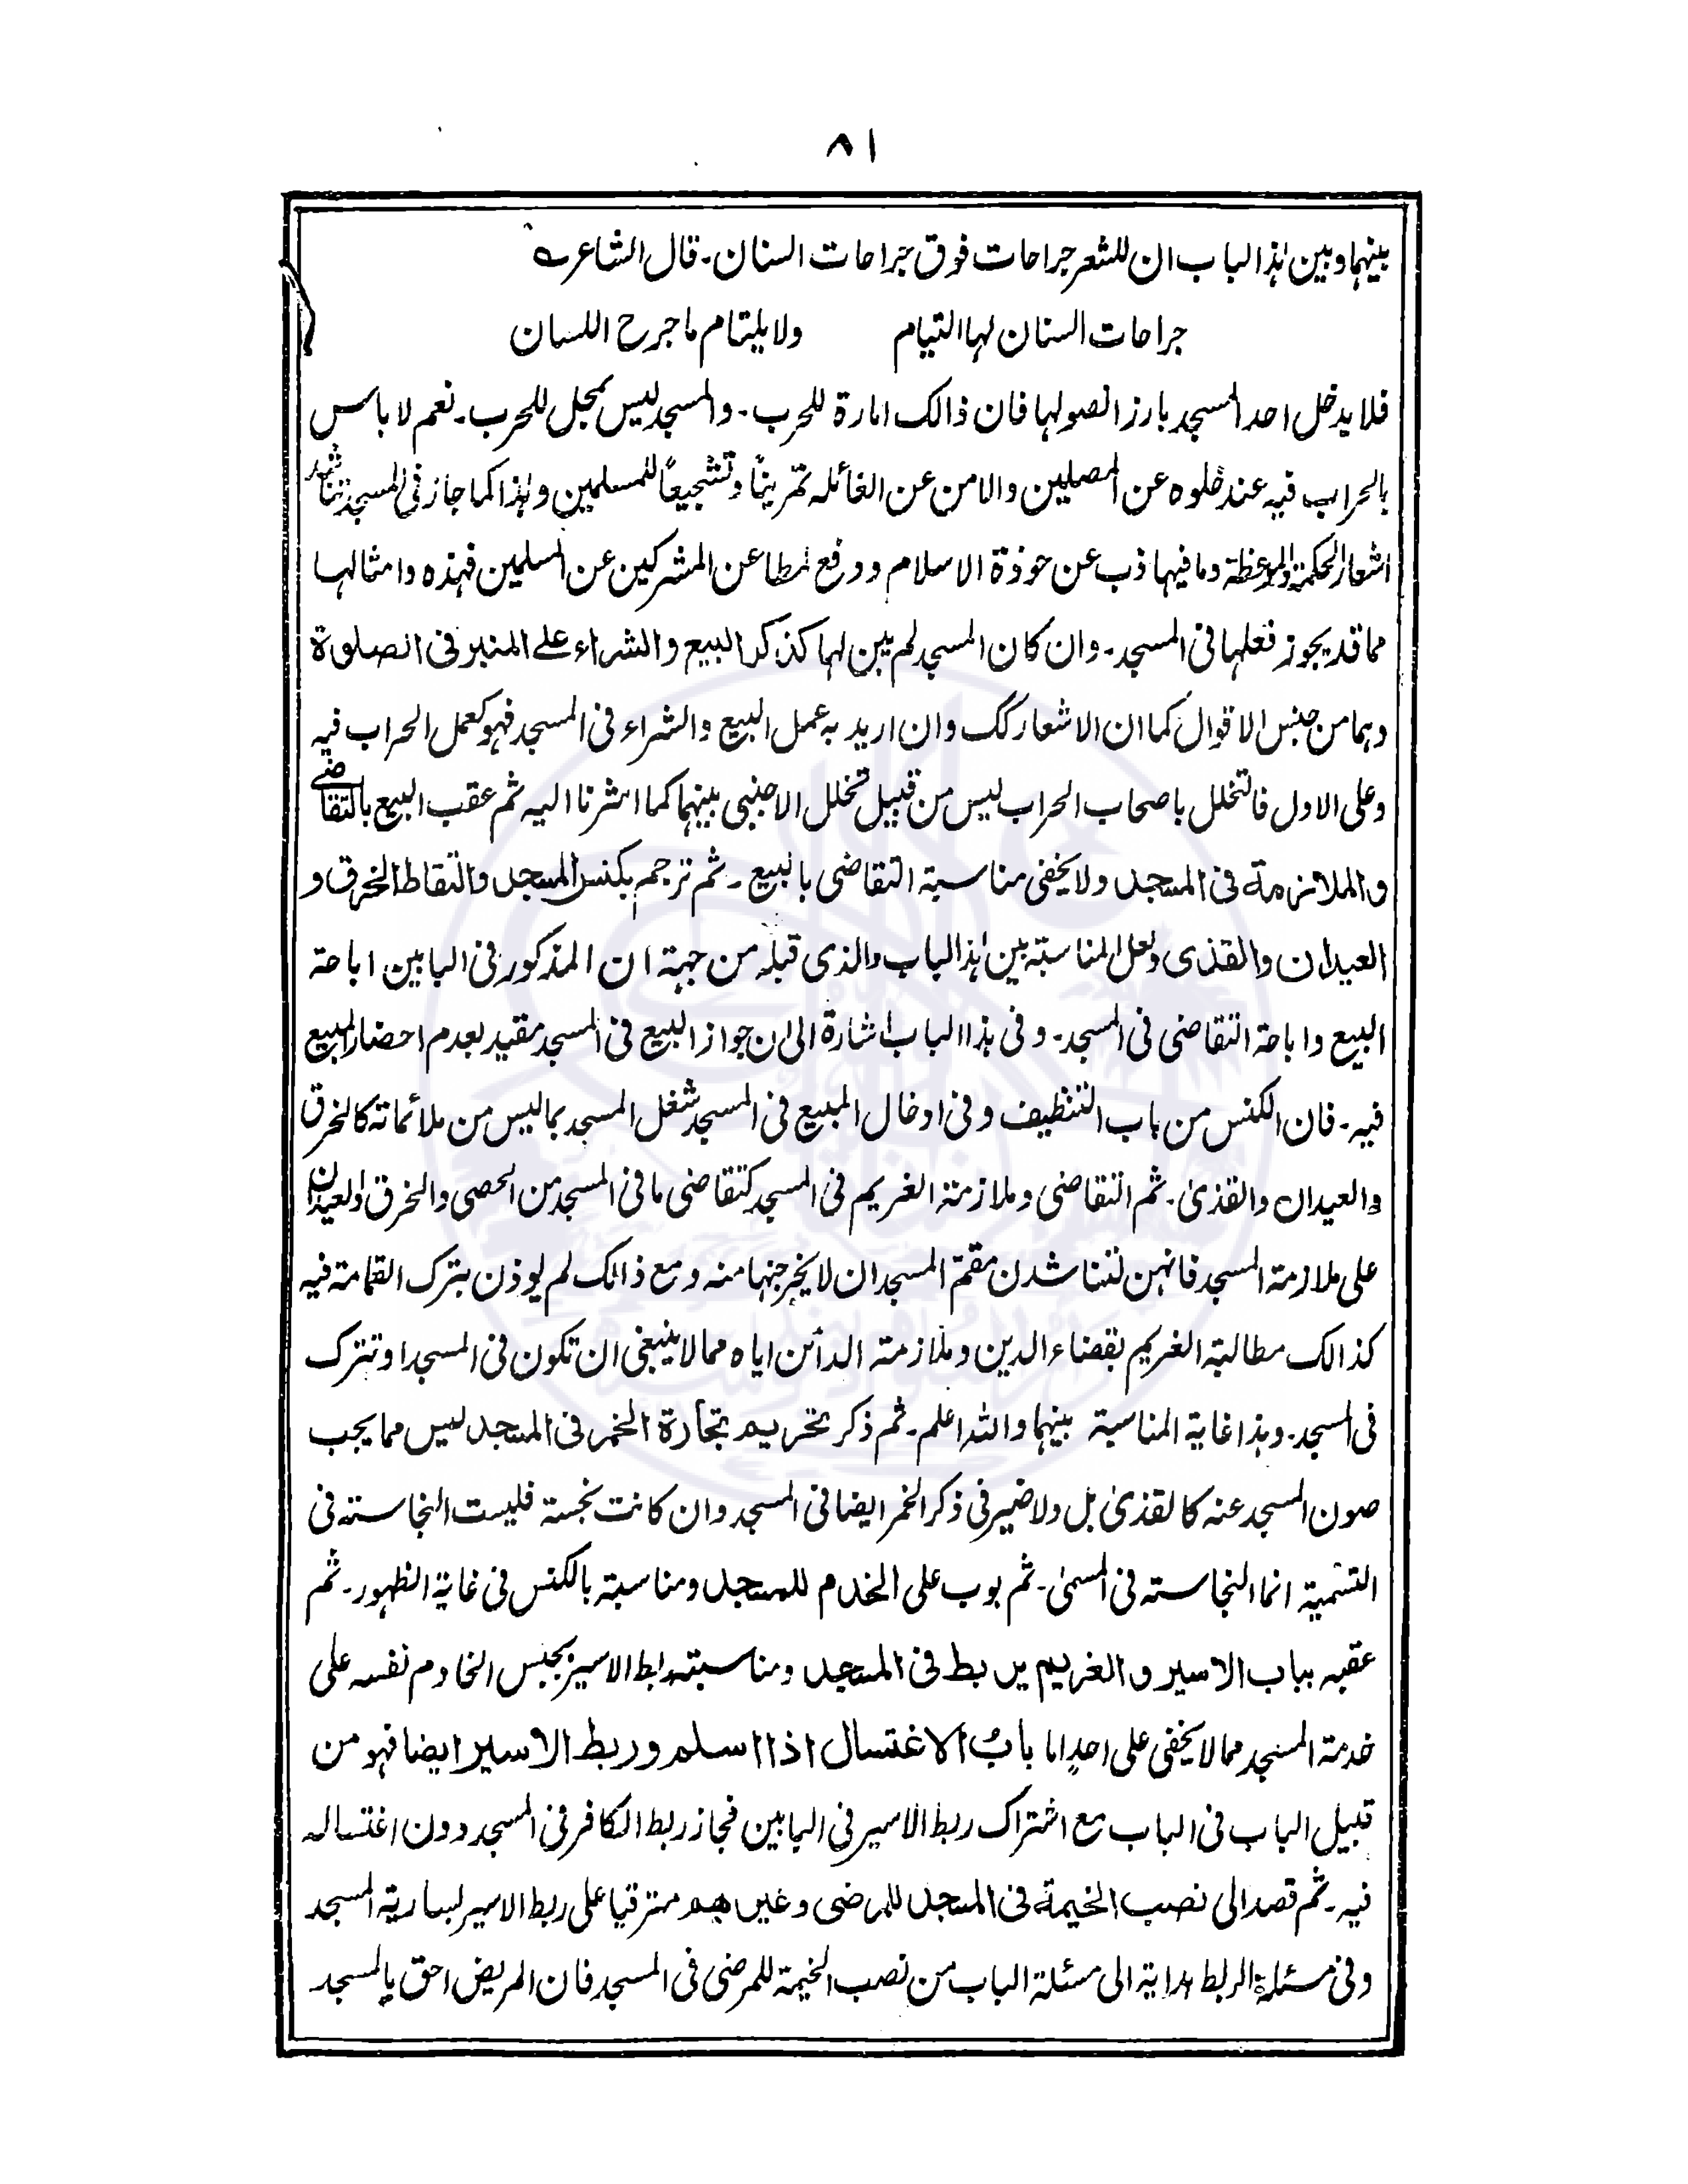 ٨١
بينهما وبين هذا الباب ان للشعر جراحات فوق جراحات السنان۔ قال الشاعر ے
جراحات السنان لها التيام ولا يلتام ما جرح اللسان
فلا يدخل احد المسجد بارز النصولها فان ذالك امارة للحرب۔ والمسجد ليس بمحل للحرب۔ نعم لا باس
بالحراب فيه عند خلوه عن المصلين والامن عن الغائله تمرينًا وتشجيعًا للمسلمين وهذا كما جاز فى المسجد تناشد
اشعار الحكمة والموعظة وما فيها ذب عن حوذة الاسلام ودفع لمطاعن المشركين عن المسلمين فهذه وامثالها
مما قد يجوز فعلها فى المسجد۔ وان كان المسجد لم يبن لها كذكر البيع والشراء على المنبر فى الصلوة
وهما من جنس الاقوال كما ان الاشعار كك وان اريد به عمل البيع والشراء فى المسجد فهو كعمل الحراب فيه
وعلى الاول فالتخلل باصحاب الحراب ليس من قبيل تخلل الاجنبى بينهما كما اشرنا اليه ثم عقب البيع بالتقاضى
والملازمة فى المسجد ولا يخفى مناسبة التقاضى بالبيع۔ ثم ترجم بكنس المسجد والتقاط الخرق و
العيدان والقذى ولعل المناسبة بين هذا الباب والذى قبله من جهة ان المذكور فى البابين اباحة
البيع واباحة التقاضى فى المسجد۔ وفى هذا الباب اشارة الى ان جواز البيع فى المسجد مقيد بعدم احضار المبيع
فيه۔ فان الكنس من باب التنظيف وفى ادخال المبيع فى المسجد شغل المسجد بما ليس من ملائماته كالخرق
والعيدان والقذىٰ۔ ثم التقاضى وملازمة الغريم فى المسجد كتقاضى ما فى المسجد من الحصى والخرق والعيدان
على ملازمة المسجد فانهن تتناشدن مقمّ المسجد ان لا يخرجنها منه ومع ذالك لم يوذن بترك القمامة فيه
كذالك مطالبة الغريم بقضاء الدين وملازمة الدائن اياه مما لا ينبغى ان تكون فى المسجد او تترك
فى المسجد۔ وهذا غاية المناسبة بينهما والله اعلم۔ ثم ذكر تحريم تجارة الخمر فى المسجد ليس مما يجب
صون المسجد عنه كالقذىٰ بل ولا ضير فى ذكر الخمر ايضا فى المسجد وان كانت نجسة فليست النجاسته فى
التسمية انما النجاسته فى المسمىٰ۔ ثم بوب على الخدم للمسجد ومناسبة بالكنس فى غاية الظهور۔ ثم
عقبه بباب الاسير و الغريم يربط فى المسجد ومناسبته ربط الاسير بحبس الخادم نفسه على
خدمة المسجد مما لا يخفى على احد اما بابُ الاغتسال اذا اسلم وربط الاسير ايضا فهو من
قبيل الباب فى الباب مع اشتراك ربط الاسير فى البابين فجاز ربط الكافر فى المسجد دون اغتساله
فيه۔ ثم قصد الى نصب الخيمة فى المسجد للمرضى وغيرهم مترقيا على ربط الاسير لسارية المسجد
وفى مسئلة الربط هداية الى مسئلة الباب من نصب الخيمة للمرضى فى المسجد فان المريض احق بالمسجد